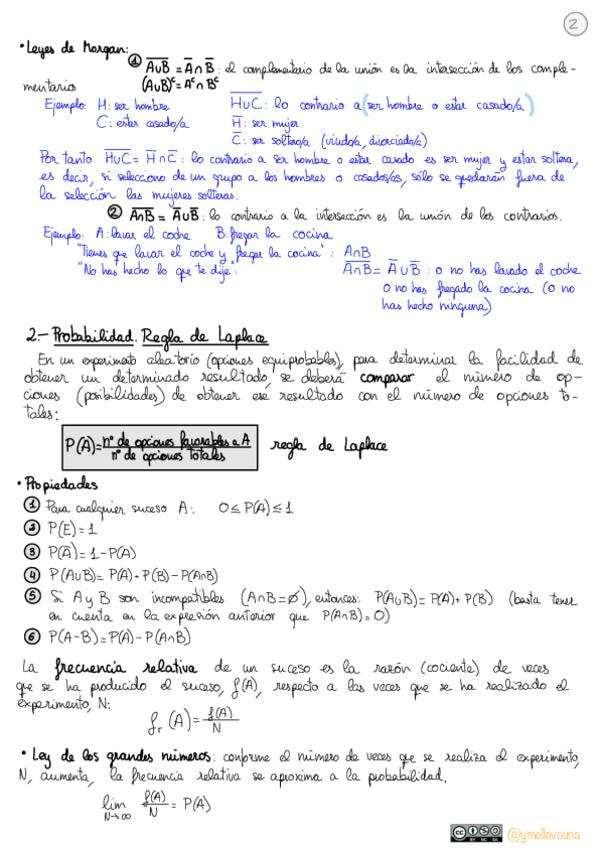 2
• Leyes de Morgan:
① A̅U̅B̅ = A̅∩B̅ : el complementario de la unión es la intersección de los comple-
mentarios (AUB)ᶜ = Aᶜ∩Bᶜ
Ejemplo: H: ser hombre H̅U̅C̅: lo contrario a (ser hombre o estar casado/a)
C: estar casado/a H̅: ser mujer
C̅: ser soltero/a (viudo/a, divorciado/a)
Por tanto H̅U̅C̅ = H̅∩C̅ : lo contrario a ser hombre o estar casado es ser mujer y estar soltera,
es decir, si selecciono de un grupo a los hombres o casados/as, sólo se quedarán fuera de
la selección las mujeres solteras.
② A̅∩̅B̅ = A̅UB̅ : lo contrario a la intersección es la unión de los contrarios.
Ejemplo: A: lavar el coche B: fregar la cocina
"Tienes que lavar el coche y fregar la cocina": A∩B
"No has hecho lo que te dije": A̅∩̅B̅ = A̅UB̅ : o no has lavado el coche
o no has fregado la cocina (o no
has hecho ninguna)
2.- Probabilidad. Regla de Laplace
En un experimento aleatorio (opciones equiprobables), para determinar la facilidad de
obtener un determinado resultado, se deberá comparar el número de op-
ciones (posibilidades) de obtener ese resultado con el número de opciones to-
tales:
P(A) = nº de opciones favorables a A / nº de opciones totales regla de Laplace
• Propiedades
① Para cualquier suceso A: 0 ≤ P(A) ≤ 1
② P(E) = 1
③ P(A̅) = 1 - P(A)
④ P(AUB) = P(A) + P(B) - P(A∩B)
⑤ Si A y B son incompatibles (A∩B = ∅), entonces: P(AUB) = P(A) + P(B) (basta tener
en cuenta en la expresión anterior que P(A∩B) = 0)
⑥ P(A-B) = P(A) - P(A∩B)
La frecuencia relativa de un suceso es la razón (cociente) de veces
que se ha producido el suceso, f(A), respecto a las veces que se ha realizado el
experimento, N:
fᵣ(A) = f(A) / N
• Ley de los grandes números: conforme el número de veces que se realiza el experimento,
N, aumenta, la frecuencia relativa se aproxima a la probabilidad.
lim N→∞ f(A) / N = P(A)
cc BY NC SA @ymellevouna